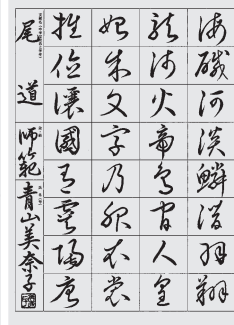 海鹹河淡鱗潛羽翔
龍師火帝鳥官人皇
始制文字乃服衣裳
推位讓國有虞陶唐
尾道 師範 青山美奈子